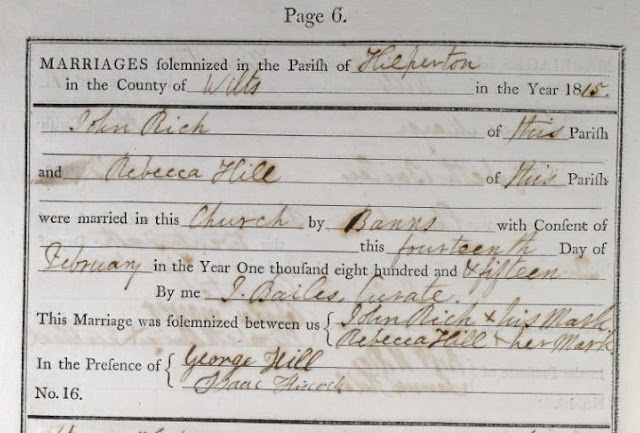 Page 6.
MARRIAGES ſolemnized in the Pariſh of Hilperton
in the County of Wilts in the Year 1815.
John Rich of this Pariſh
and Rebecca Hill of this Pariſh
were married in this Church by Banns with Conſent of
this fourteenth Day of
February in the Year One thouſand eight hundred and fifteen
By me J. Bailes, Curate.
This Marriage was ſolemnized between us { John Rich x his Mark
Rebecca Hill x her Mark
In the Preſence of { George Hill
Isaac Hiscock
No. 16.